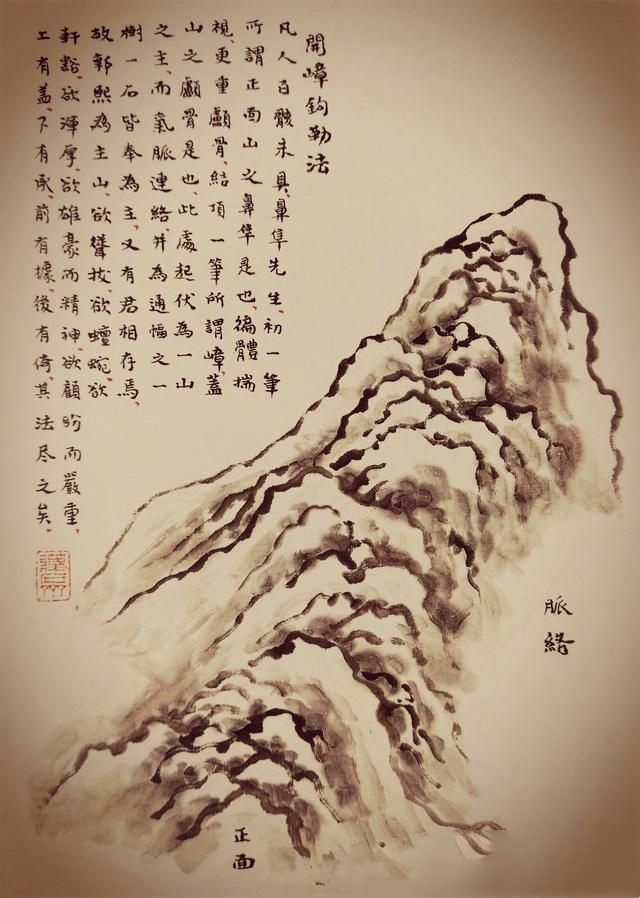 開嶂鈎勒法
凡人百骸未具、鼻隼先生、初一筆
所謂正面山之鼻隼是也、徧體揣
視、更重顱骨、結頂一筆所謂嶂蓋
山之顱骨是也、此處起伏為一山
之主、而氣脈連絡、并為通幅之一
樹一石皆奉為主、又有君相存焉、
故郭熙為主山、欲聳拔、欲蟺蜿、欲
軒豁、欲渾厚、欲雄豪而精神、欲顧盼而嚴重、
上有蓋、下有承、前有據、後有倚、其法尽之矣、
脈絡
正面